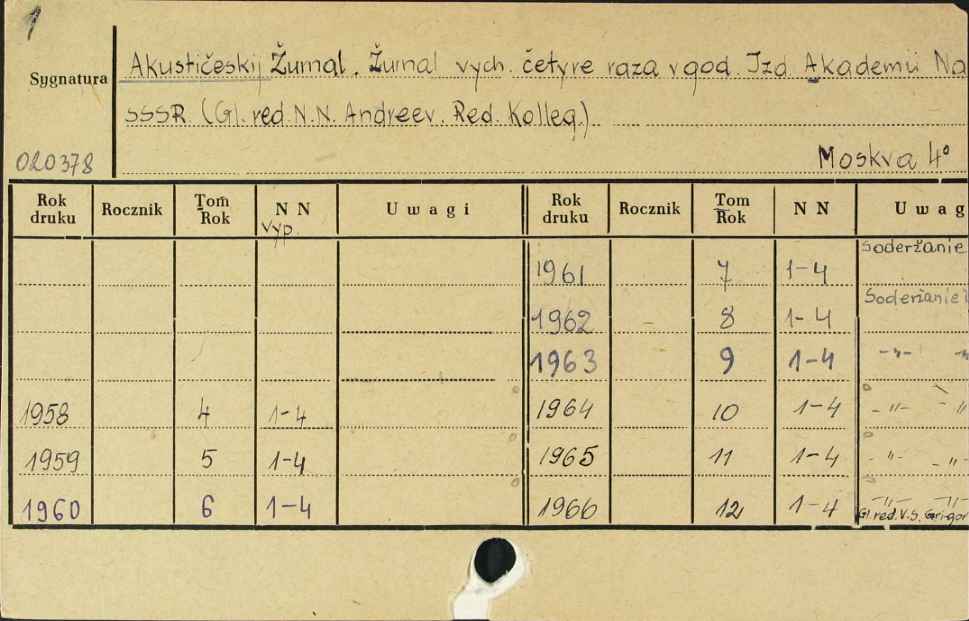 1
Sygnatura
Akustičeskij Žurnal. Žurnal vych. četyre raza v god. Izd. Akademii Na
SSSR (Gl. red. N.N. Andreev. Red. Kolleg.)
020378
Moskva 4°
Rok druku Rocznik Tom Rok N N Uwagi Rok druku Rocznik Tom Rok N N Uwag
Vyp.
Soderžanie
1961 7 1-4
Soderžanie
1962 8 1-4
1963 9 1-4 -"- -"
1958 4 1-4 1964 10 1-4 -"- -"
1959 5 1-4 1965 11 1-4 -"- -"-
1960 6 1-4 1966 12 1-4 -"- -"-
Gl. red. V.S. Grigor